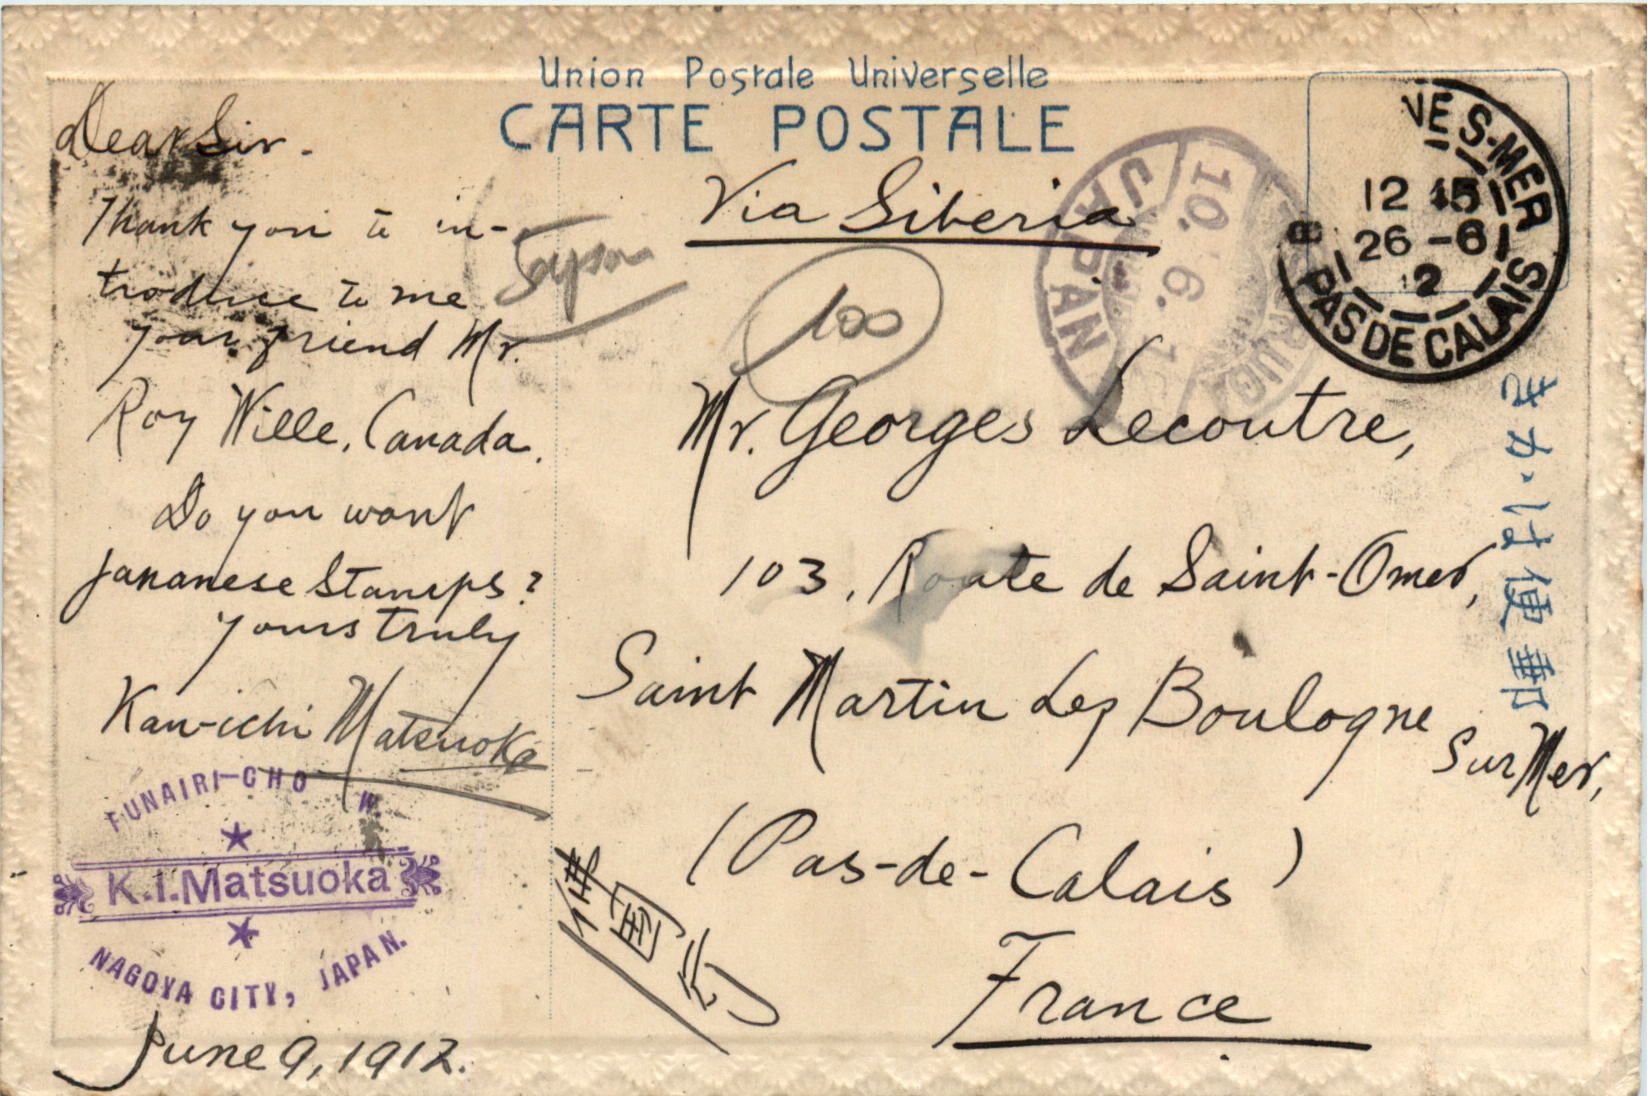 Union Postale Universelle
CARTE POSTALE
Dear Sir.
Thank you to in-
troduce to me
your friend Mr.
Roy Wille, Canada.
Do you want
Japanese Stamps?
Yours truly
Kan-ichi Matsuoka
FUNAIRI-CHO W.
K.I.Matsuoka
NAGOYA CITY, JAPAN.
June 9, 1912.
Via Siberia
Japon
100
JAPAN
10. 6. 1
VE S-MER
12 15
26 -6
12
PAS DE CALAIS
Mr. Georges Lecoutre,
103, Route de Saint-Omer,
Saint Martin Lez Boulogne
Sur Mer,
(Pas-de-Calais)
France
きかは便郵